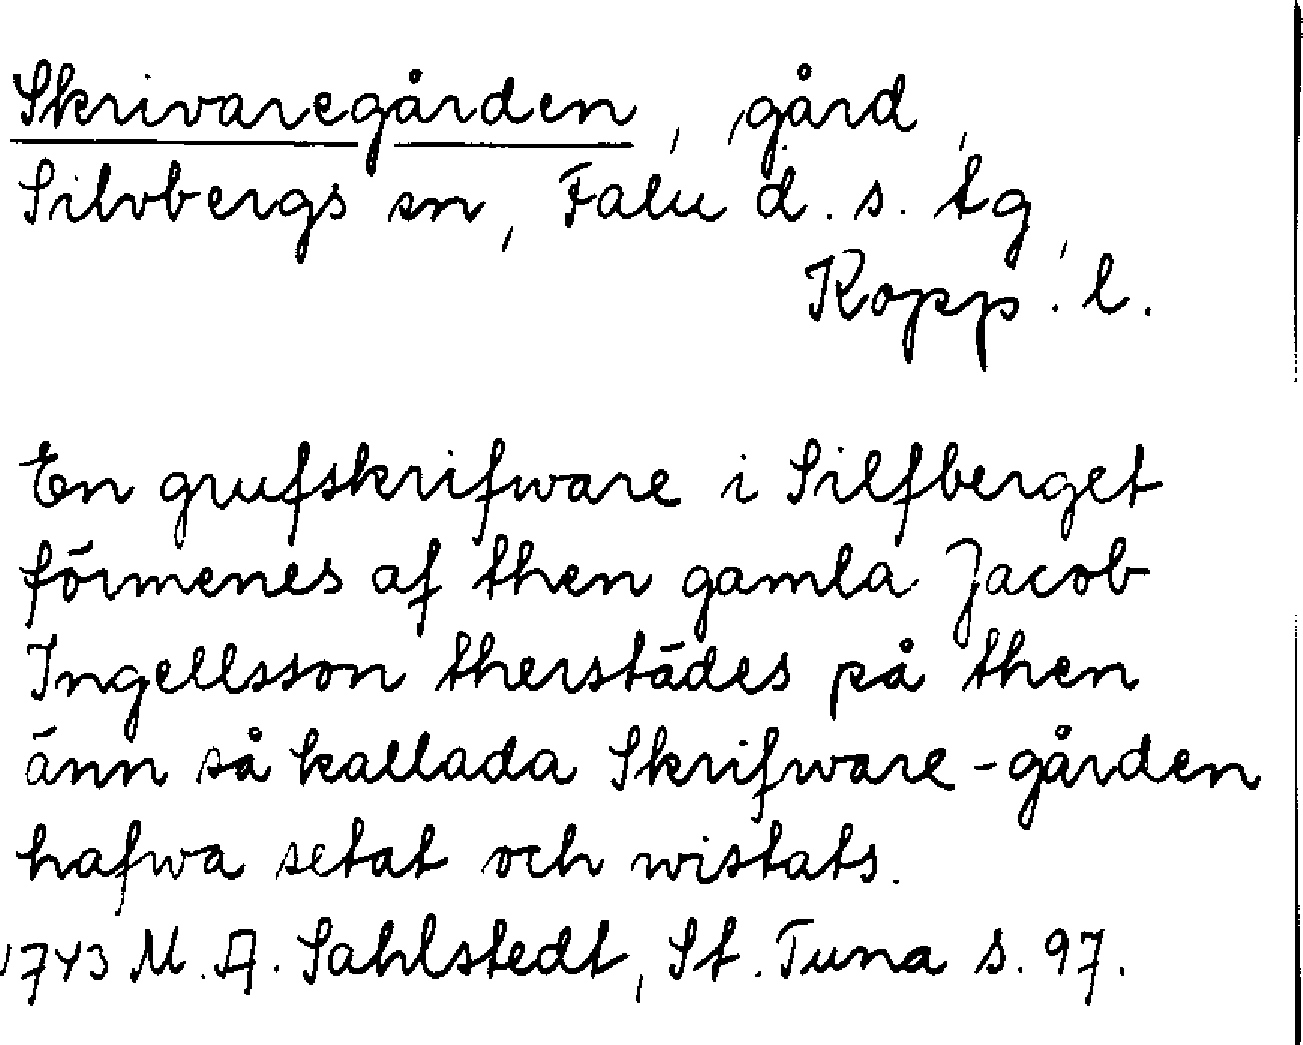 Skrivaregården, gård,
Silvbergs sn, Falu d. s. tg,
Kopp. l.
En grufskrifware i Silfberget
förmenes af then gamla Jacob
Ingellsson therstädes på then
änn så kallada Skrifware-gården
hafwa setat och wistats.
1743 M. A. Sahlstedt, St. Tuna s. 97.